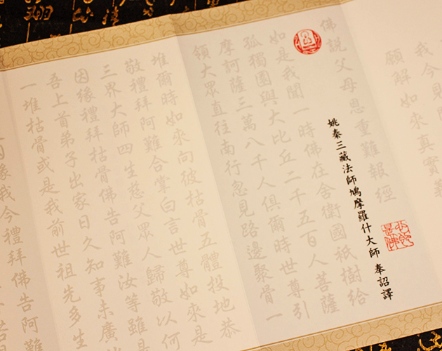 願解如來真
佛說父母恩重難報經
姚秦三藏法師鳩摩羅什大師 奉詔譯
如是我聞一時佛在舍衛國祇樹給
孤獨園與大比丘二千五百人菩薩
摩訶薩三萬八千人俱爾時世尊引
領大眾直往南行忽見路邊聚骨一
堆爾時如來向彼枯骨五體投地恭
敬禮拜阿難合掌白言世尊如來是
三界大師四生慈父眾人歸敬以何
因緣禮拜枯骨佛告阿難汝等雖是
吾上首弟子出家日久知事未廣
一堆枯骨或是我前世祖先多生
因是我今禮拜佛告阿難